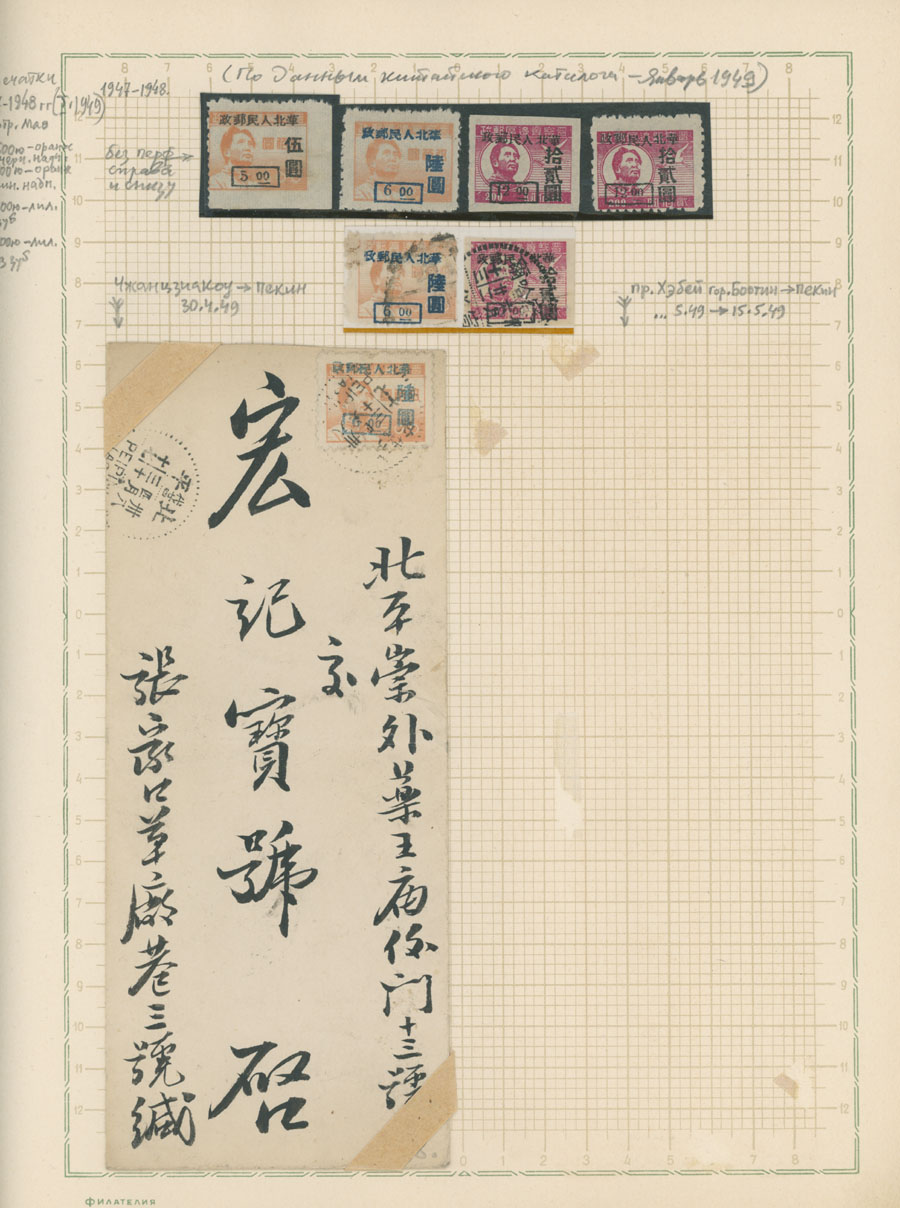 (По данным китайского каталога – январь 1949)
1947-1948.
без перф
справа
и снизу
華北人民郵政
伍圓
5 00
華北人民郵政
陸圓
6 00
華北人民郵政
拾貳圓
12 00
華北人民郵政
拾貳圓
12 00
華北人民郵政
陸圓
6 00
華北人民郵政
Чжанцзиакоу → пекин
30.4.49
пр. Хэбей гор. Баотин → Пекин
... 5.49 → 15.5.49
華北人民郵政
陸圓
北平崇外藥王廟後門十三號
交
宏記寶號 啓
張家口草廠巷三號緘
ФИЛАТЕЛИЯ